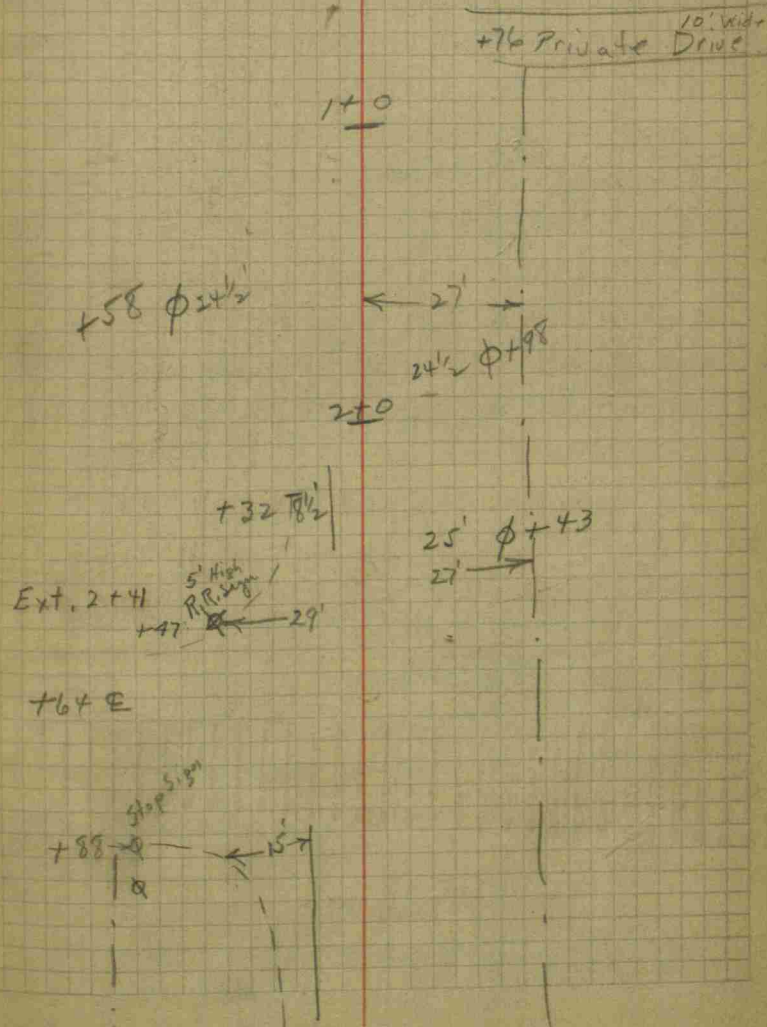 10' Wide
+76 Private Drive
1+0
+58 ϕ 24½'
27'
24½ ϕ+98
2+0
+32 18½
25' ϕ+43
27'
5' High
R.R. Sign
Ext. 2+41
+47
29'
+64 ℄
Stop Sign
+88
15'